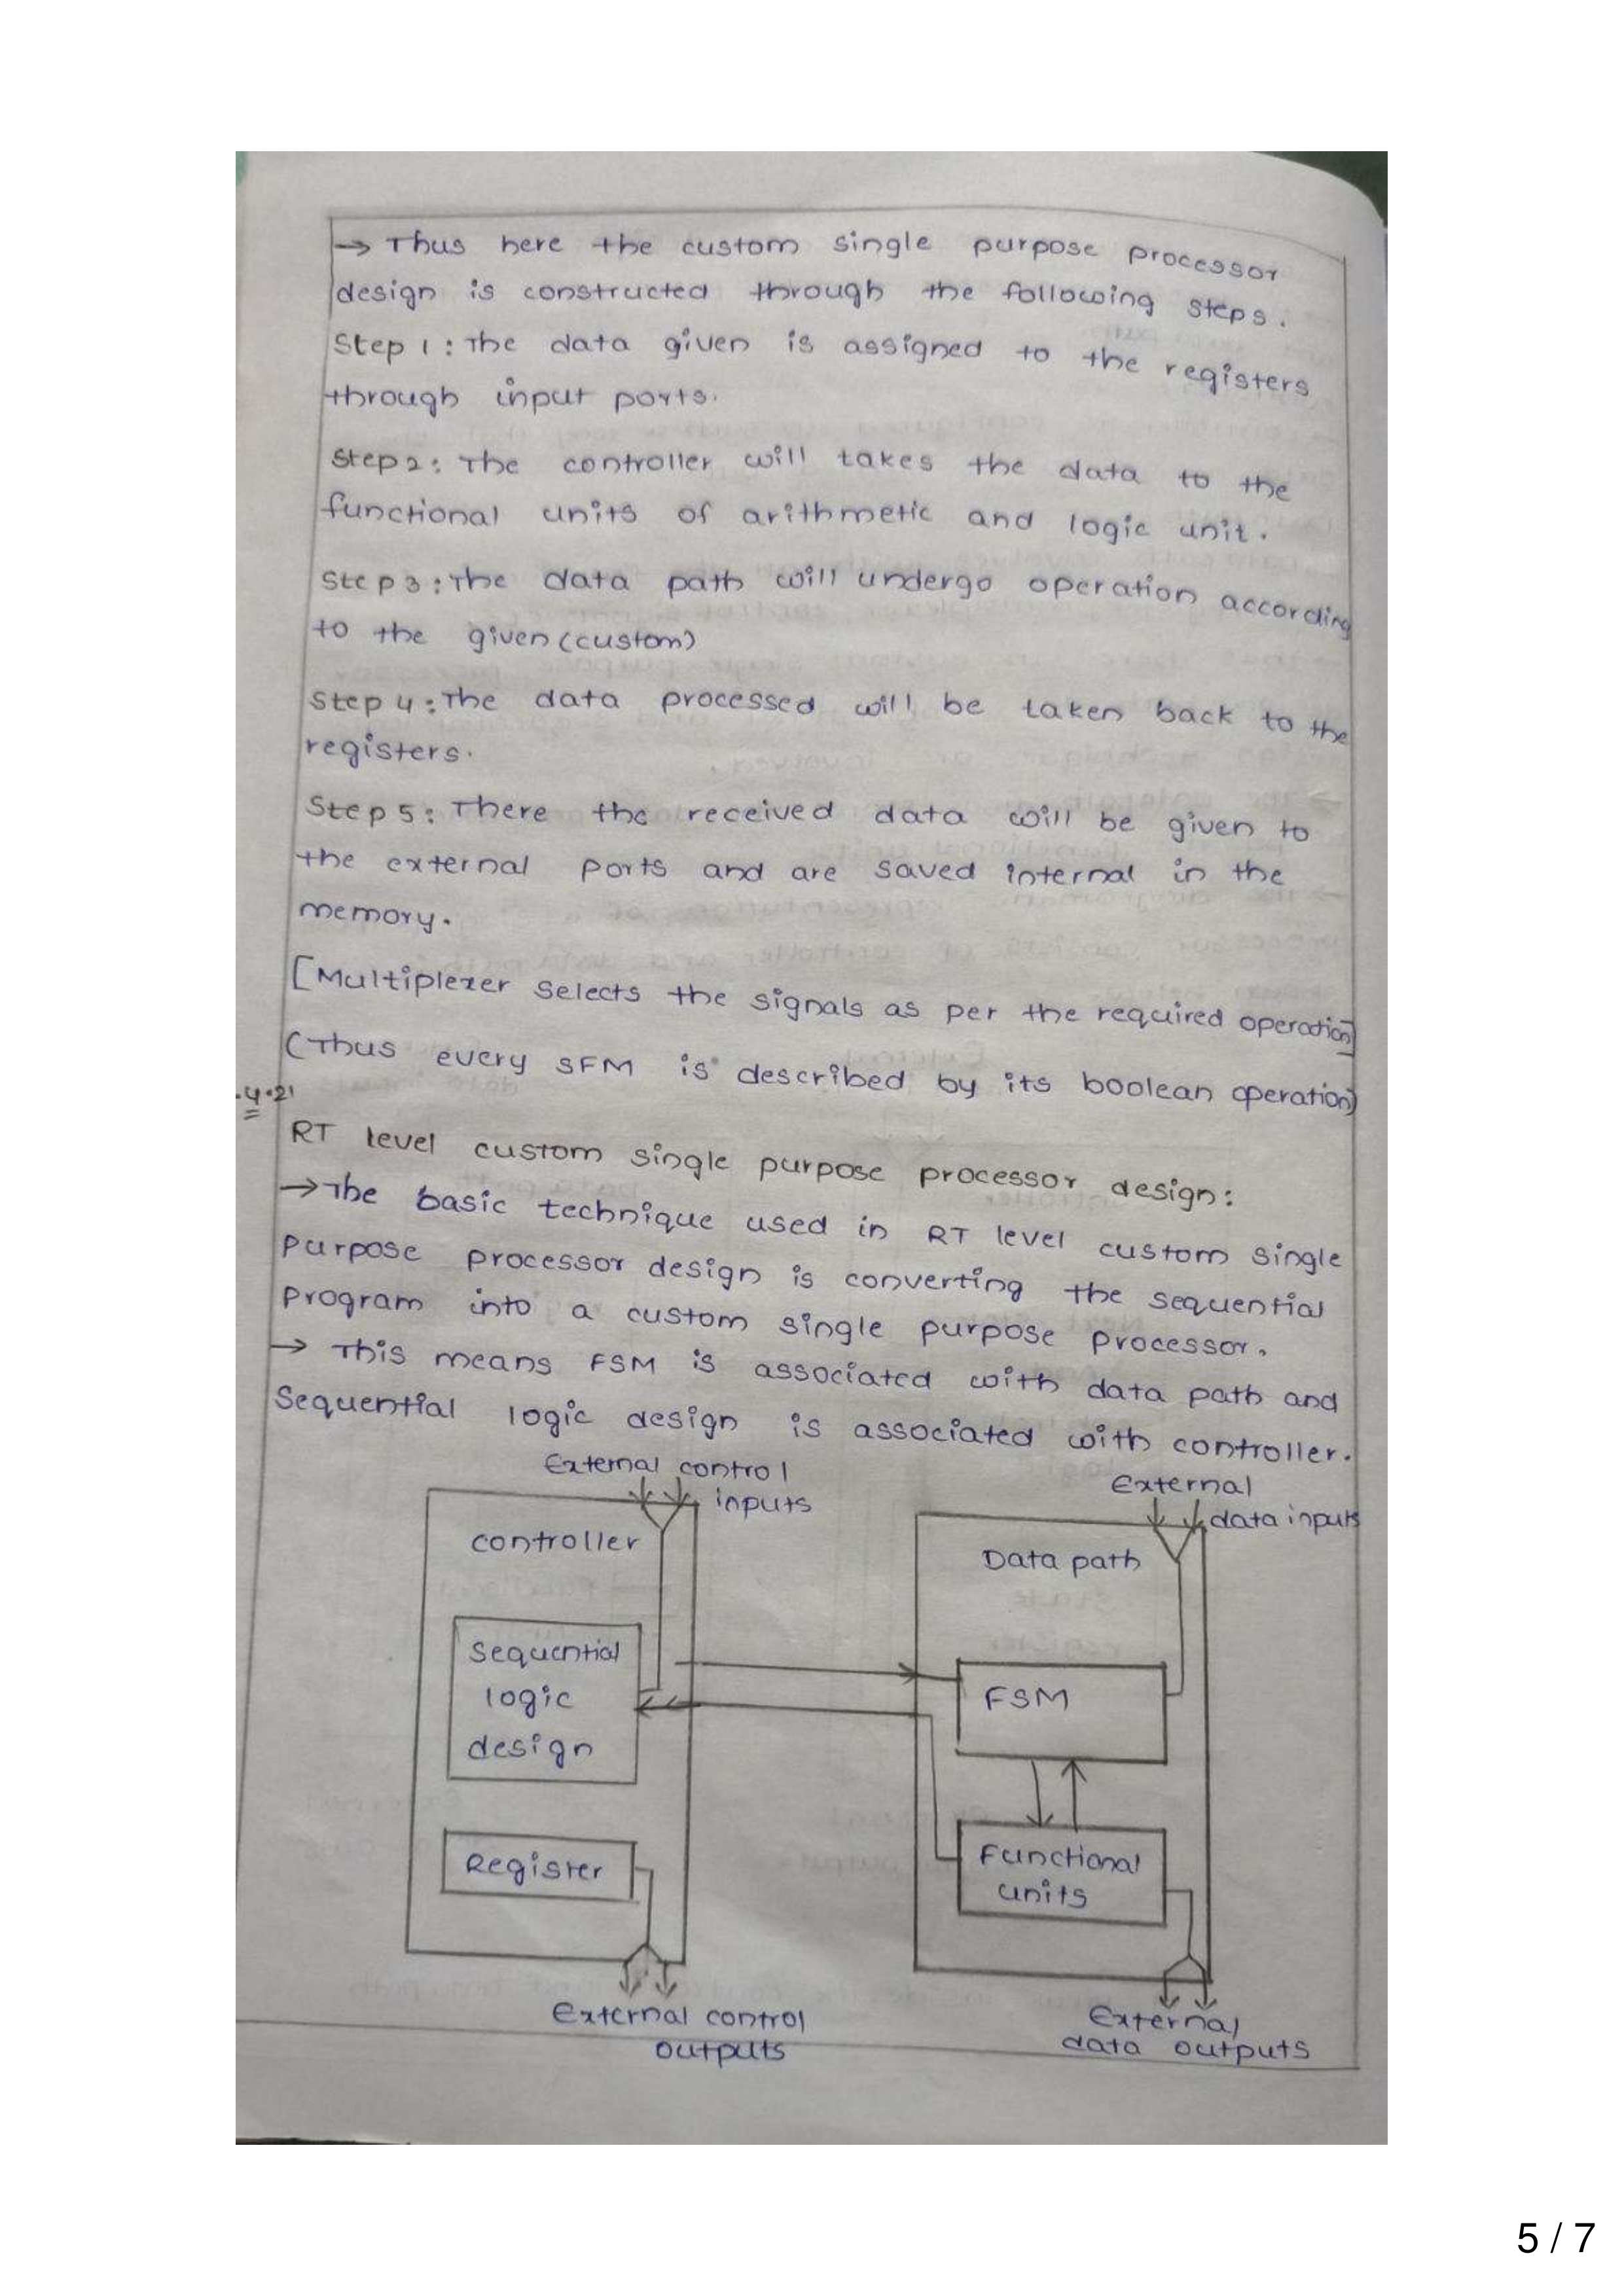 → Thus here the custom single purpose processor
design is constructed through the following steps.
Step 1 : The data given is assigned to the registers
through input ports.
Step 2 : The controller will takes the data to the
functional units of arithmetic and logic unit.
Step 3 : The data path will undergo operation according
to the given (custom)
Step 4 : The data processed will be taken back to the
registers.
Step 5 : There the received data will be given to
the external ports and are saved internal in the
memory.
[Multiplexer selects the signals as per the required operation]
(Thus every SFM is described by its boolean operation)
.4.21
RT level custom single purpose processor design :
→ The basic technique used in RT level custom single
purpose processor design is converting the sequential
program into a custom single purpose processor.
→ This means FSM is associated with data path and
Sequential logic design is associated with controller.
External control
inputs
External
data inputs
controller
Data path
Sequential
logic
design
FSM
Register
Functional
units
External control
outputs
External
data outputs
5 / 7